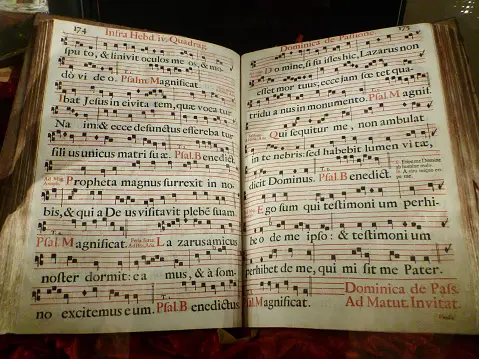 174
Infra Hebd. iv. Quadrag.
sputo, & linivit oculos meos, & mo
do vi deo. Psalm. Magnificat.
Ibat Jesus in civita tem, quæ voca tur
Na im: & ecce defunctus efferebatur
fili us unicus matri suæ. Psal. Benedict.
Propheta magnus surrexit in no
bis, & qui a De us visitavit plebē suam.
Psal. Magnificat. La zarus amicus
noster dormit: ea mus, & à som-
no excitemus eum. Psal. Benedictus.
175
Dominica de Passione.
Do mine, si fu isses hic, Lazarus non
esset mor tuus; ecce jam fœ tet qua-
tridu a nus in monumento. Psal. Magnif.
Qui sequitur me, non ambulat
in te nebris: sed habebit lumen vi tæ,
dicit Dominus. Psal. Benedict.
Ego sum qui testimoni um perhi-
be o de me ipso: & testimoni um
perhibet de me, qui mi sit me Pater.
Psal. Magnificat.
Dominica de Pass.
Ad Matut. Invitat.